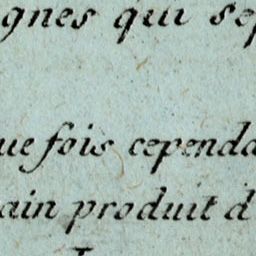 gnes qui sep
ue fois cependa
ain produit d